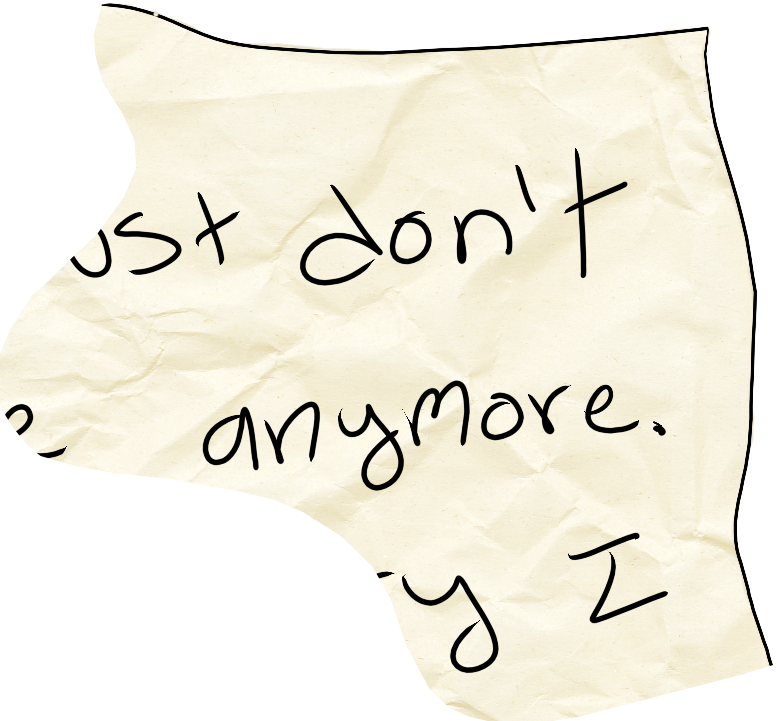 ust don't
e anymore.
ry I